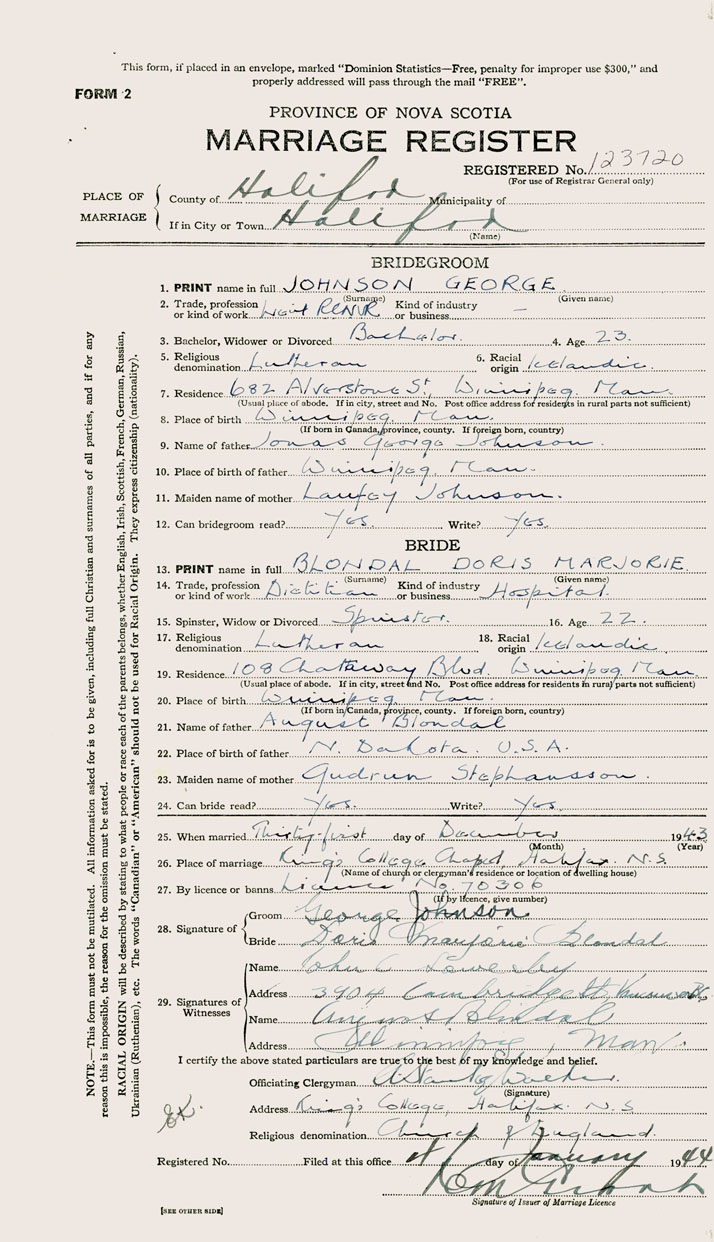 This form, if placed in an envelope, marked "Dominion Statistics—Free, penalty for improper use $300," and
properly addressed will pass through the mail "FREE".
FORM 2
PROVINCE OF NOVA SCOTIA
MARRIAGE REGISTER
REGISTERED No. 123720
(For use of Registrar General only)
PLACE OF MARRIAGE
County of Halifax Municipality of
If in City or Town Halifax
(Name)
BRIDEGROOM
1. PRINT name in full JOHNSON GEORGE
(Surname) (Given name)
2. Trade, profession or kind of work Lieut RCNVR Kind of industry or business —
3. Bachelor, Widower or Divorced Bachelor. 4. Age 23.
5. Religious denomination Lutheran 6. Racial origin Icelandic.
7. Residence 682 Alverstone St, Winnipeg, Man.
(Usual place of abode. If in city, street and No. Post office address for residents in rural parts not sufficient)
8. Place of birth Winnipeg Man.
(If born in Canada, province, county. If foreign born, country)
9. Name of father Jonas George Johnson.
10. Place of birth of father Winnipeg, Man.
11. Maiden name of mother Laufey Johnson.
12. Can bridegroom read? Yes. Write? Yes.
BRIDE
13. PRINT name in full BLONDAL DORIS MARJORIE
(Surname) (Given name)
14. Trade, profession or kind of work Dietitian Kind of industry or business Hospital.
15. Spinster, Widow or Divorced Spinster. 16. Age 22.
17. Religious denomination Lutheran 18. Racial origin Icelandic.
19. Residence 108 Chataway Blvd, Winnipeg Man
(Usual place of abode. If in city, street and No. Post office address for residents in rural parts not sufficient)
20. Place of birth Winnipeg Man.
(If born in Canada, province, county. If foreign born, country)
21. Name of father August Blondal
22. Place of birth of father N. Dakota. U.S.A.
23. Maiden name of mother Gudrun Stephansson.
24. Can bride read? Yes. Write? Yes.
25. When married Thirty-first day of December 1943
(Month) (Year)
26. Place of marriage King's College Chapel, Halifax. N.S.
(Name of church or clergyman's residence or location of dwelling house)
27. By licence or banns Licence No. 70306
(If by licence, give number)
28. Signature of
Groom George Johnson
Bride Doris Marjorie Blondal
29. Signatures of Witnesses
Name John C
Address 3904 Cambridge St,
Name August Blondal
Address Winnipeg, Man
I certify the above stated particulars are true to the best of my knowledge and belief.
Officiating Clergyman A Stanley Walker.
(Signature)
Address King's College, Halifax. N.S
Religious denomination Church of England.
Registered No. Filed at this office day of January 1944
Signature of Issuer of Marriage Licence
[SEE OTHER SIDE]
NOTE.—This form must not be mutilated. All information asked for is to be given, including full Christian and surnames of all parties, and if for any
reason this is impossible, the reason for the omission must be stated.
RACIAL ORIGIN will be described by stating to what people or race each of the parents belongs, whether English, Irish, Scottish, French, German, Russian,
Ukrainian (Ruthenian), etc. The words "Canadian" or "American" should not be used for Racial Origin. They express citizenship (nationality).